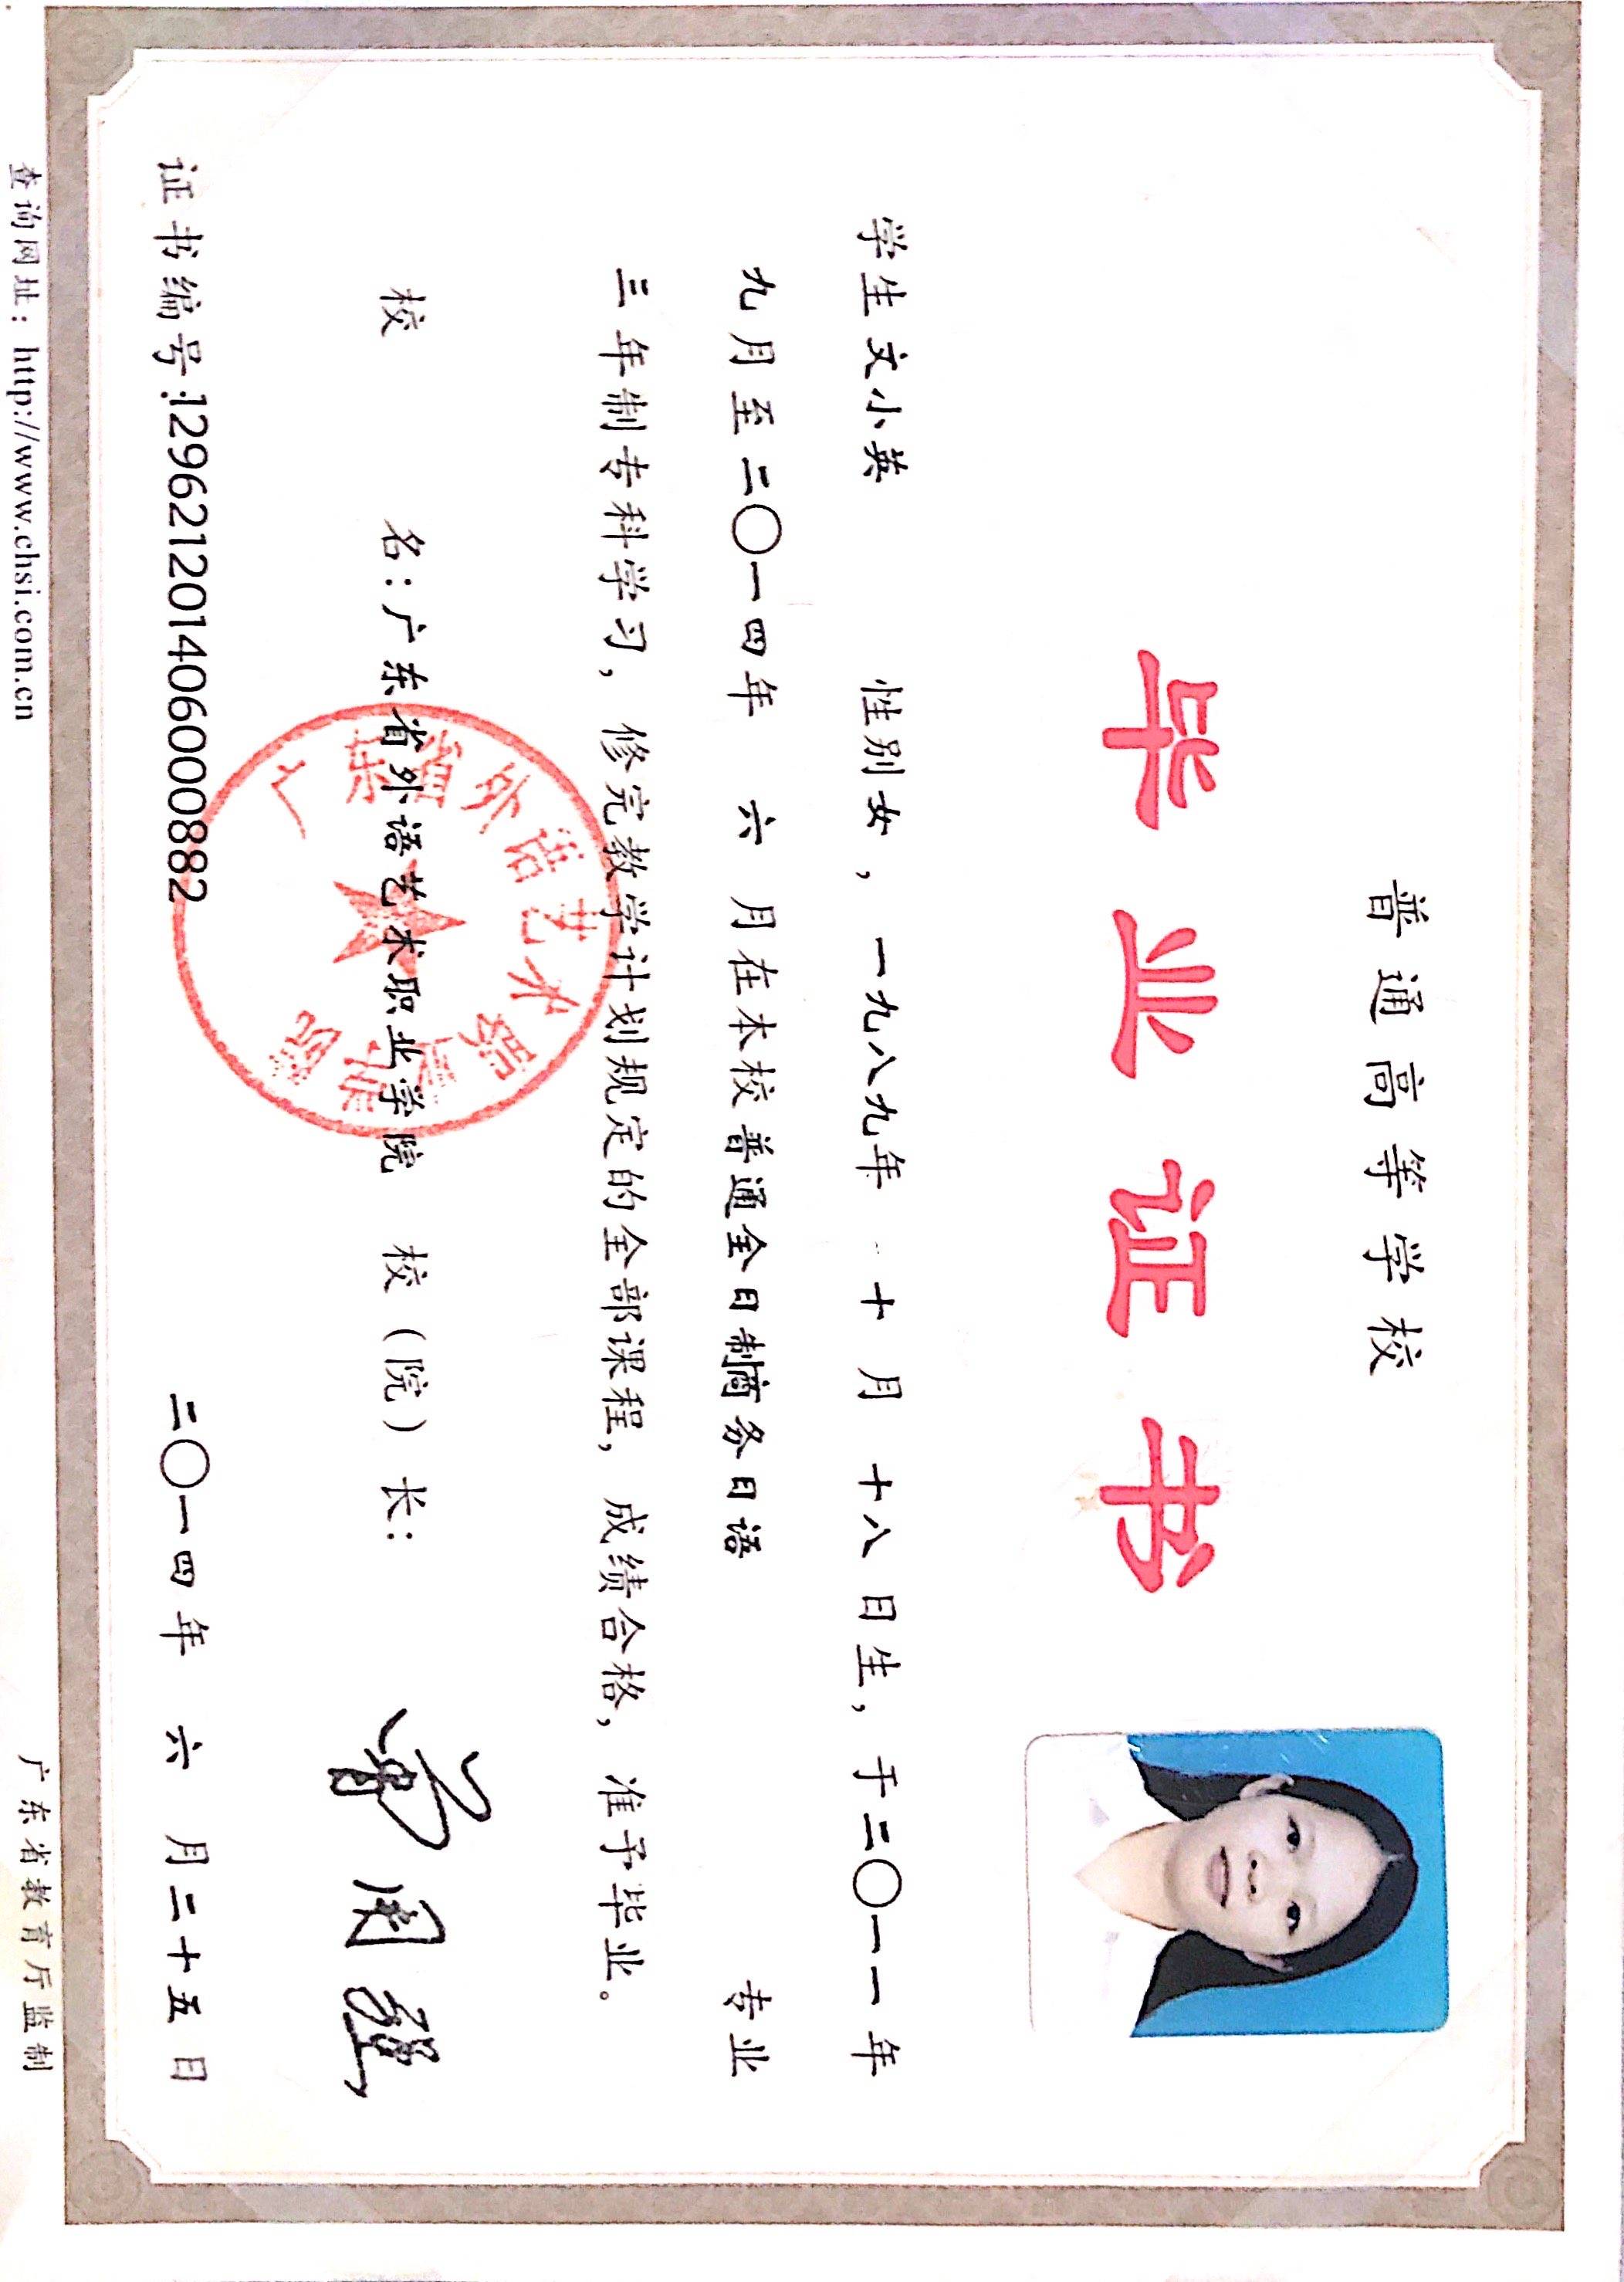 普通高等学校
毕业证书
学生 文小英 性别 女，一九八九年 十 月 十八 日生，于二〇一一 年
九月至二〇一四年 六 月在本校普通全日制商务日语 专业
三 年制专科学习，修完教学计划规定的全部课程，成绩合格，准予毕业。
校 名：广东省外语艺术职业学院 校（院）长：
广东省外语艺术职业学院
证书编号:129621201406000882 二〇一四年 六 月二十五日
查询网址：http://www.chsi.com.cn 广东省教育厅监制